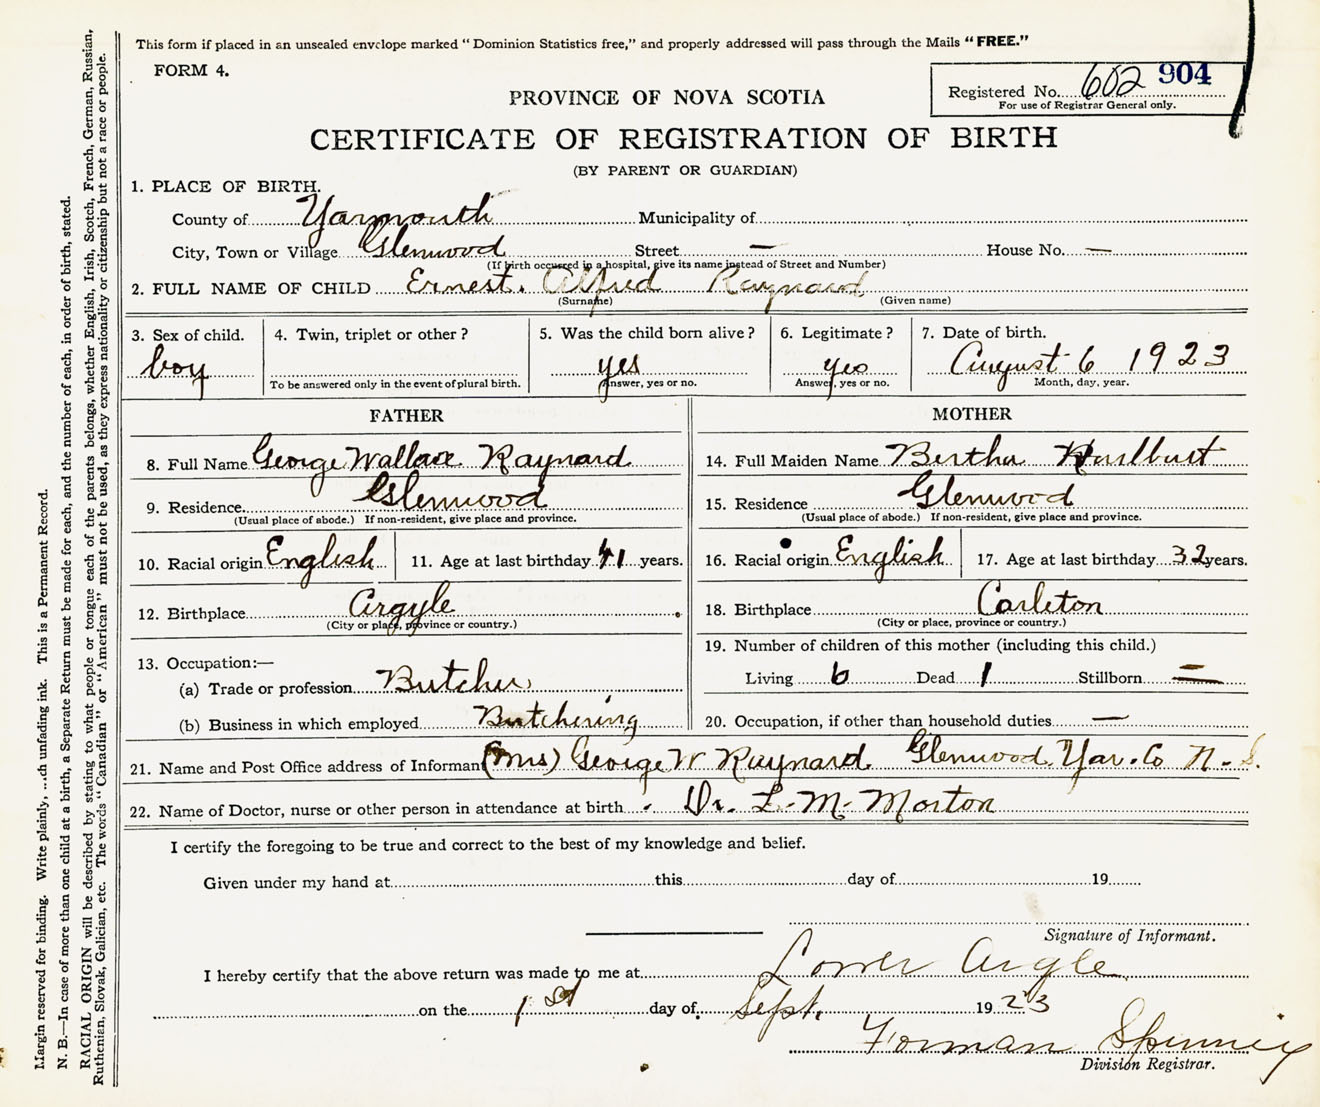 This form if placed in an unsealed envelope marked “Dominion Statistics free,” and properly addressed will pass through the Mails “FREE.”
FORM 4.
Registered No. 602 904
For use of Registrar General only.
PROVINCE OF NOVA SCOTIA
CERTIFICATE OF REGISTRATION OF BIRTH
(BY PARENT OR GUARDIAN)
1. PLACE OF BIRTH.
County of Yarmouth Municipality of
City, Town or Village Glenwood Street — House No. —
(If birth occurred in a hospital, give its name instead of Street and Number)
2. FULL NAME OF CHILD Ernest. Alfred Raynard
(Surname) (Given name)
3. Sex of child. 4. Twin, triplet or other? 5. Was the child born alive? 6. Legitimate? 7. Date of birth.
boy yes yes August 6 1923
To be answered only in the event of plural birth. Answer, yes or no. Answer, yes or no. Month, day, year.
FATHER MOTHER
8. Full Name George Wallace Raynard 14. Full Maiden Name Bertha Hurlburt
9. Residence Glenwood 15. Residence Glenwood
(Usual place of abode.) If non-resident, give place and province. (Usual place of abode.) If non-resident, give place and province.
10. Racial origin English 11. Age at last birthday 41 years. 16. Racial origin English 17. Age at last birthday 32 years.
12. Birthplace Argyle 18. Birthplace Carleton
(City or place, province or country.) (City or place, province or country.)
13. Occupation:— 19. Number of children of this mother (including this child.)
(a) Trade or profession Butcher Living 6 Dead 1 Stillborn —
(b) Business in which employed Butchering 20. Occupation, if other than household duties —
21. Name and Post Office address of Informan (Mrs) George W Raynard Glenwood, Yar. Co N. S.
22. Name of Doctor, nurse or other person in attendance at birth Dr. L. M. Morton
I certify the foregoing to be true and correct to the best of my knowledge and belief.
Given under my hand at this day of 19
Signature of Informant.
I hereby certify that the above return was made to me at Lower Argle
on the 1st day of Sept. 1923
Forman Spinney
Division Registrar.
Margin reserved for binding. Write plainly, ...ch unfading ink. This is a Permanent Record.
N. B.—In case of more than one child at a birth, a Separate Return must be made for each, and the number of each, in order of birth, stated.
RACIAL ORIGIN will be described by stating to what people or tongue each of the parents belongs, whether English, Irish, Scotch, French, German, Russian,
Ruthenian, Slovak, Galician, etc. The words “Canadian” or “American” must not be used, as they express nationality or citizenship but not a race or people.